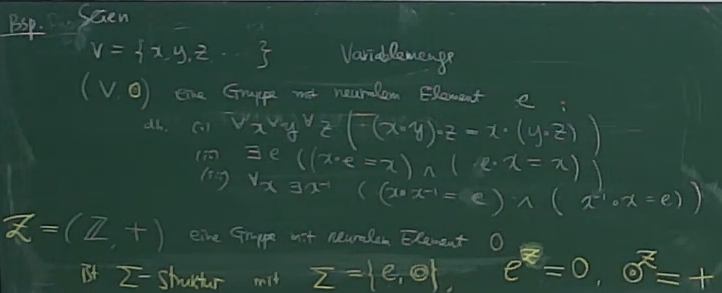 Bsp. Seien
V = {x, y, z ... } Variablenmenge
(V, ⊙) eine Gruppe mit neutralem Element e :
dh. (i) ∀x ∀y ∀z ( (x∘y)∘z = x∘(y∘z) )
(ii) ∃ e ((x∘e = x) ∧ ( e∘x = x) )
(iii) ∀x ∃x⁻¹ ( (x∘x⁻¹ = e) ∧ ( x⁻¹∘x = e) )
Z = (ℤ, +) eine Gruppe mit neutralem Element 0
ist Σ-Struktur mit Σ = {e, ⊙}, e^Z = 0, ⊙^Z = +